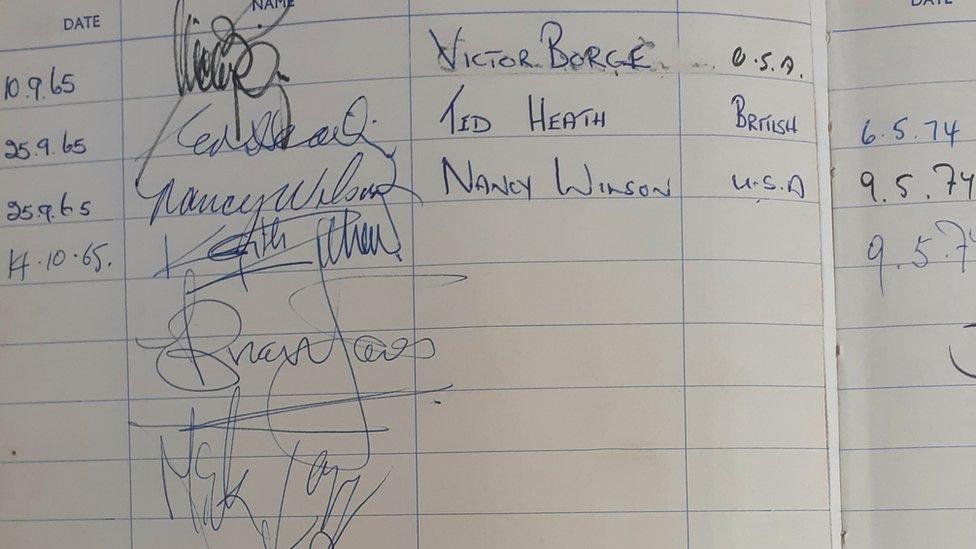 DATE NAME DATE
10.9.65 Victor Borge U.S.A.
25.9.65 Ted Heath TED HEATH BRITISH 6.5.74
25.9.65 Nancy Wilson NANCY WINSON U.S.A 9.5.74
14.10.65. Keith 9.5.74
Mick